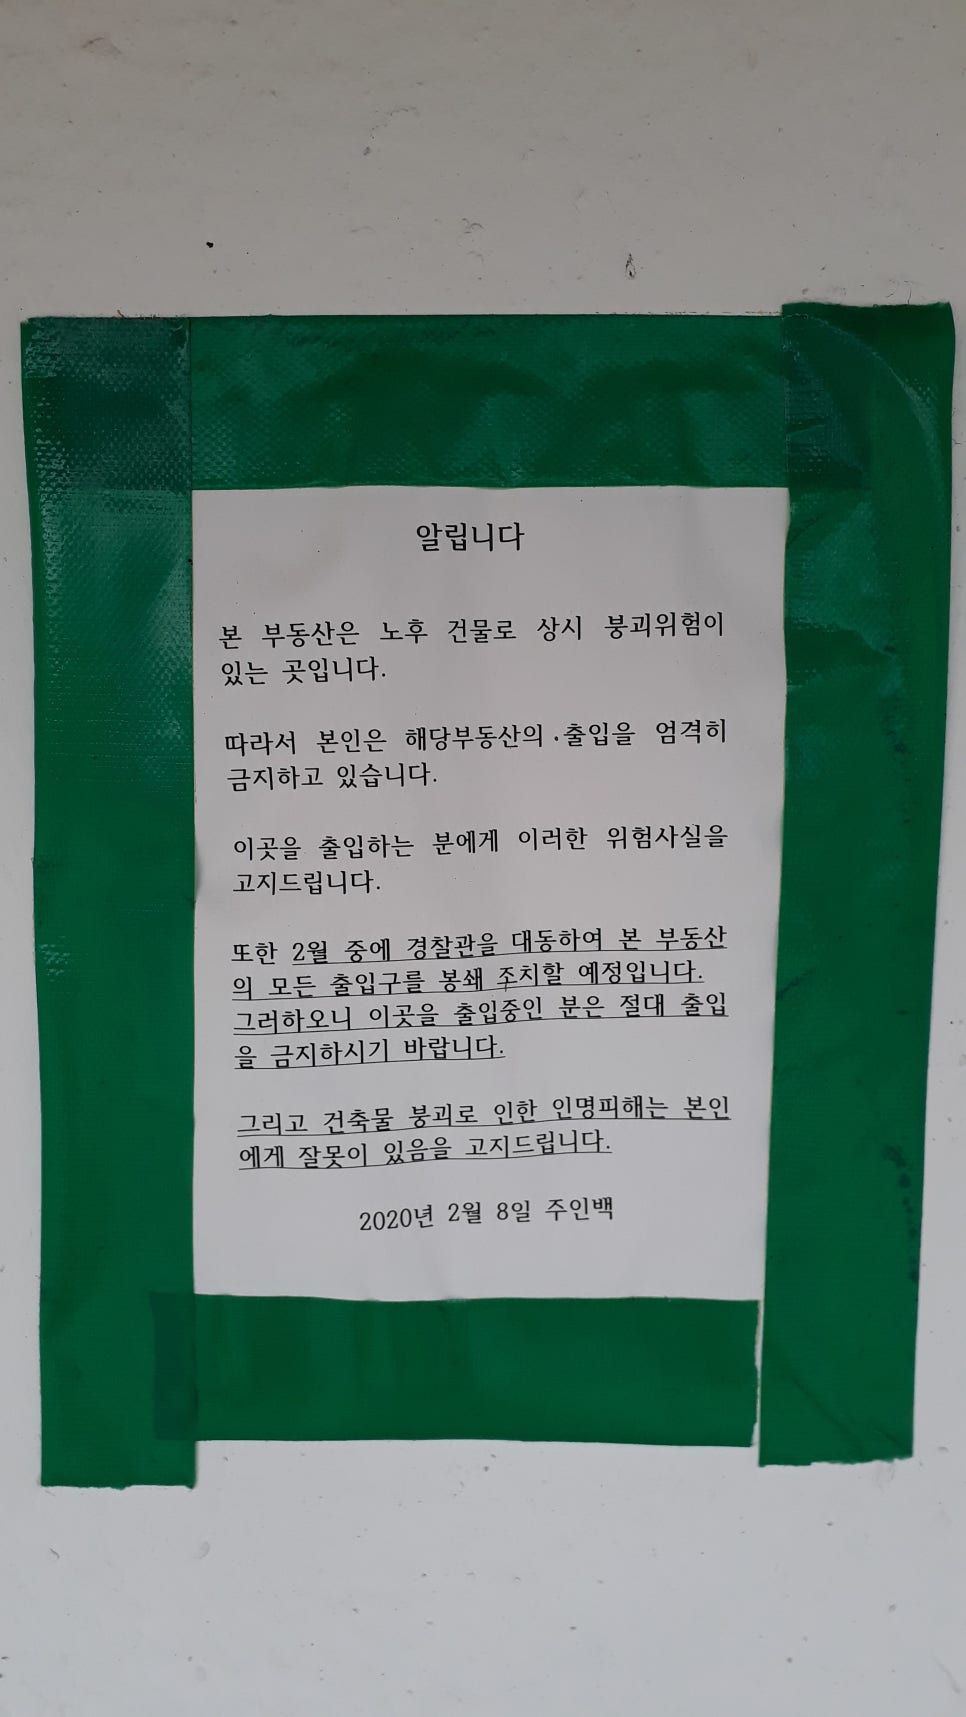 알립니다
본 부동산은 노후 건물로 상시 붕괴위험이
있는 곳입니다.
따라서 본인은 해당부동산의 출입을 엄격히
금지하고 있습니다.
이곳을 출입하는 분에게 이러한 위험사실을
고지드립니다.
또한 2월 중에 경찰관을 대동하여 본 부동산
의 모든 출입구를 봉쇄 조치할 예정입니다.
그러하오니 이곳을 출입중인 분은 절대 출입
을 금지하시기 바랍니다.
그리고 건축물 붕괴로 인한 인명피해는 본인
에게 잘못이 있음을 고지드립니다.
2020년 2월 8일 주인백